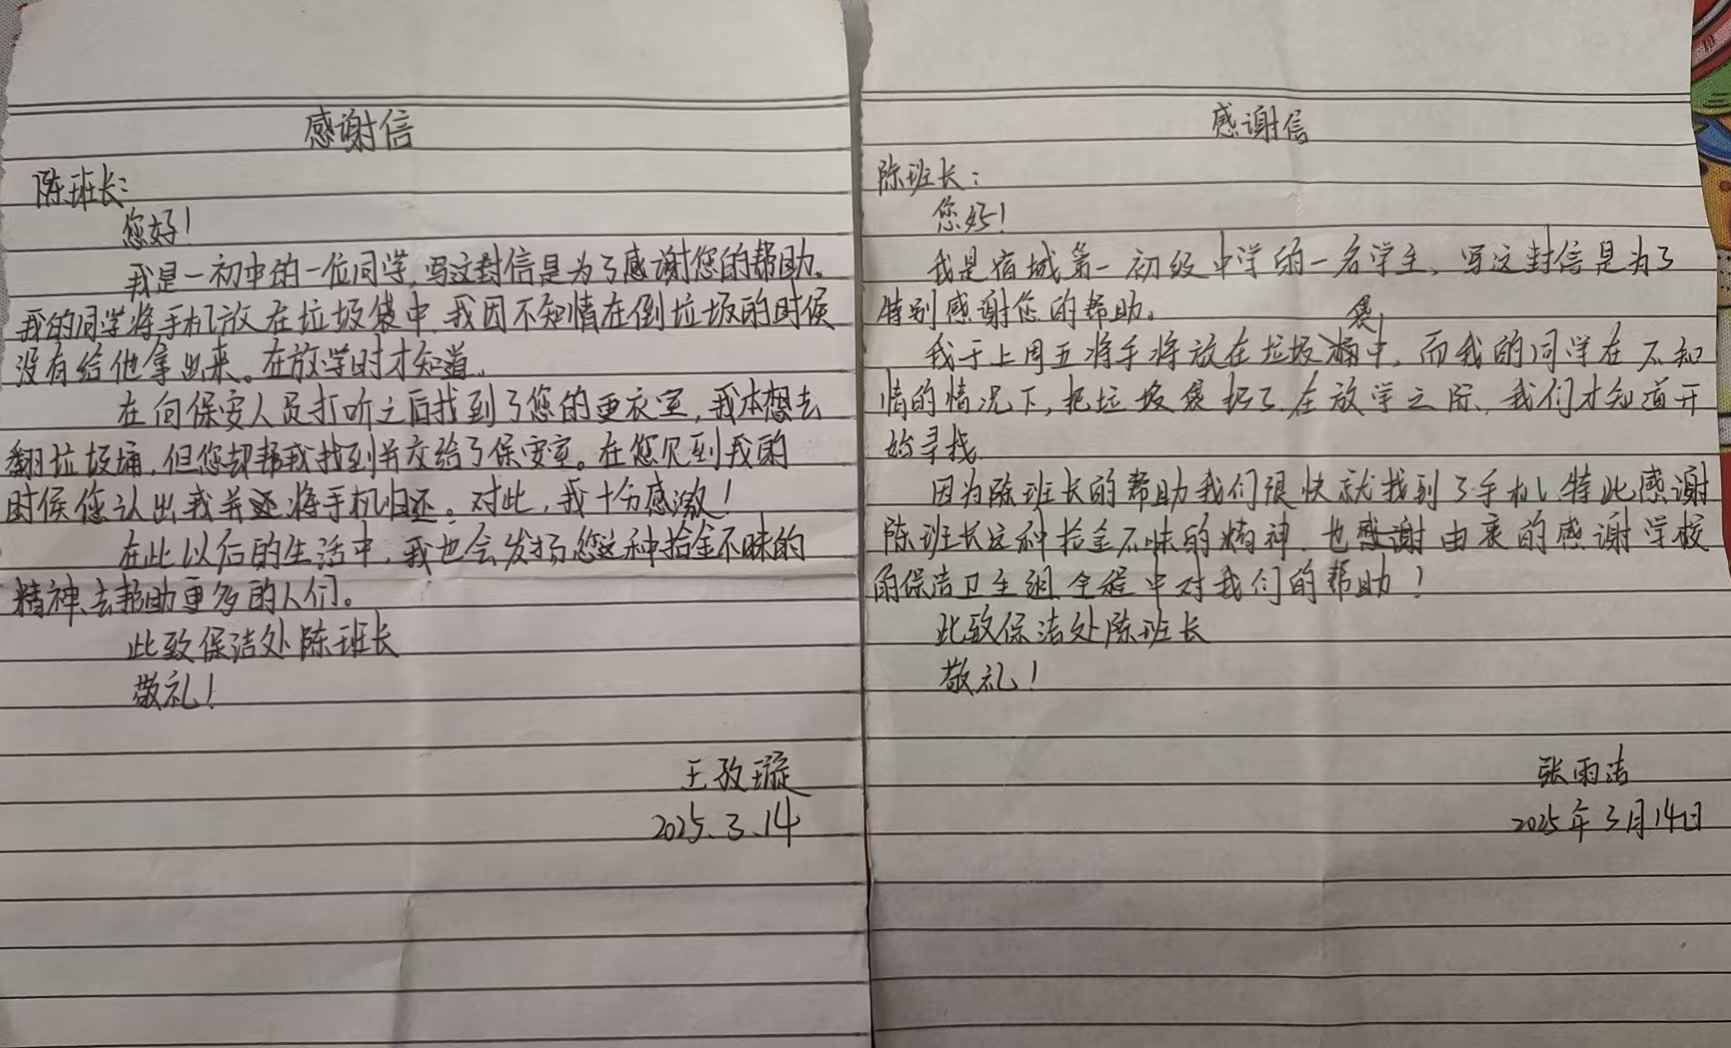 感谢信
陈班长：
您好！
我是一初中的一位同学，写这封信是为了感谢您的帮助。
我的同学将手机放在垃圾袋中，我因不知情在倒垃圾的时候
没有给他拿出来。在放学时才知道。
在向保安人员打听之后找到了您的更衣室，我本想去
翻垃圾桶，但您却帮我找到并交给了保安室。在您见到我的
时候您认出我并将手机归还。对此，我十分感激！
在此以后的生活中，我也会发扬您这种拾金不昧的
精神、去帮助更多的人们。
此致保洁处陈班长
敬礼！
王孜璇
2025.3.14
感谢信
陈班长：
您好！
我是宿城第一初级中学的一名学生，写这封信是为了
特别感谢您的帮助。
我于上周五将手将放在垃圾袋中，而我的同学在不知
情的情况下，把垃圾袋扔了，在放学之际、我们才知道开
始寻找
因为陈班长的帮助我们很快就找到了手机，特此感谢
陈班长这种拾金不昧的精神、也由衷的感谢学校
的保洁卫生组全程中对我们的帮助！
此致保洁处陈班长
敬礼！
张雨洁
2025年3月14日